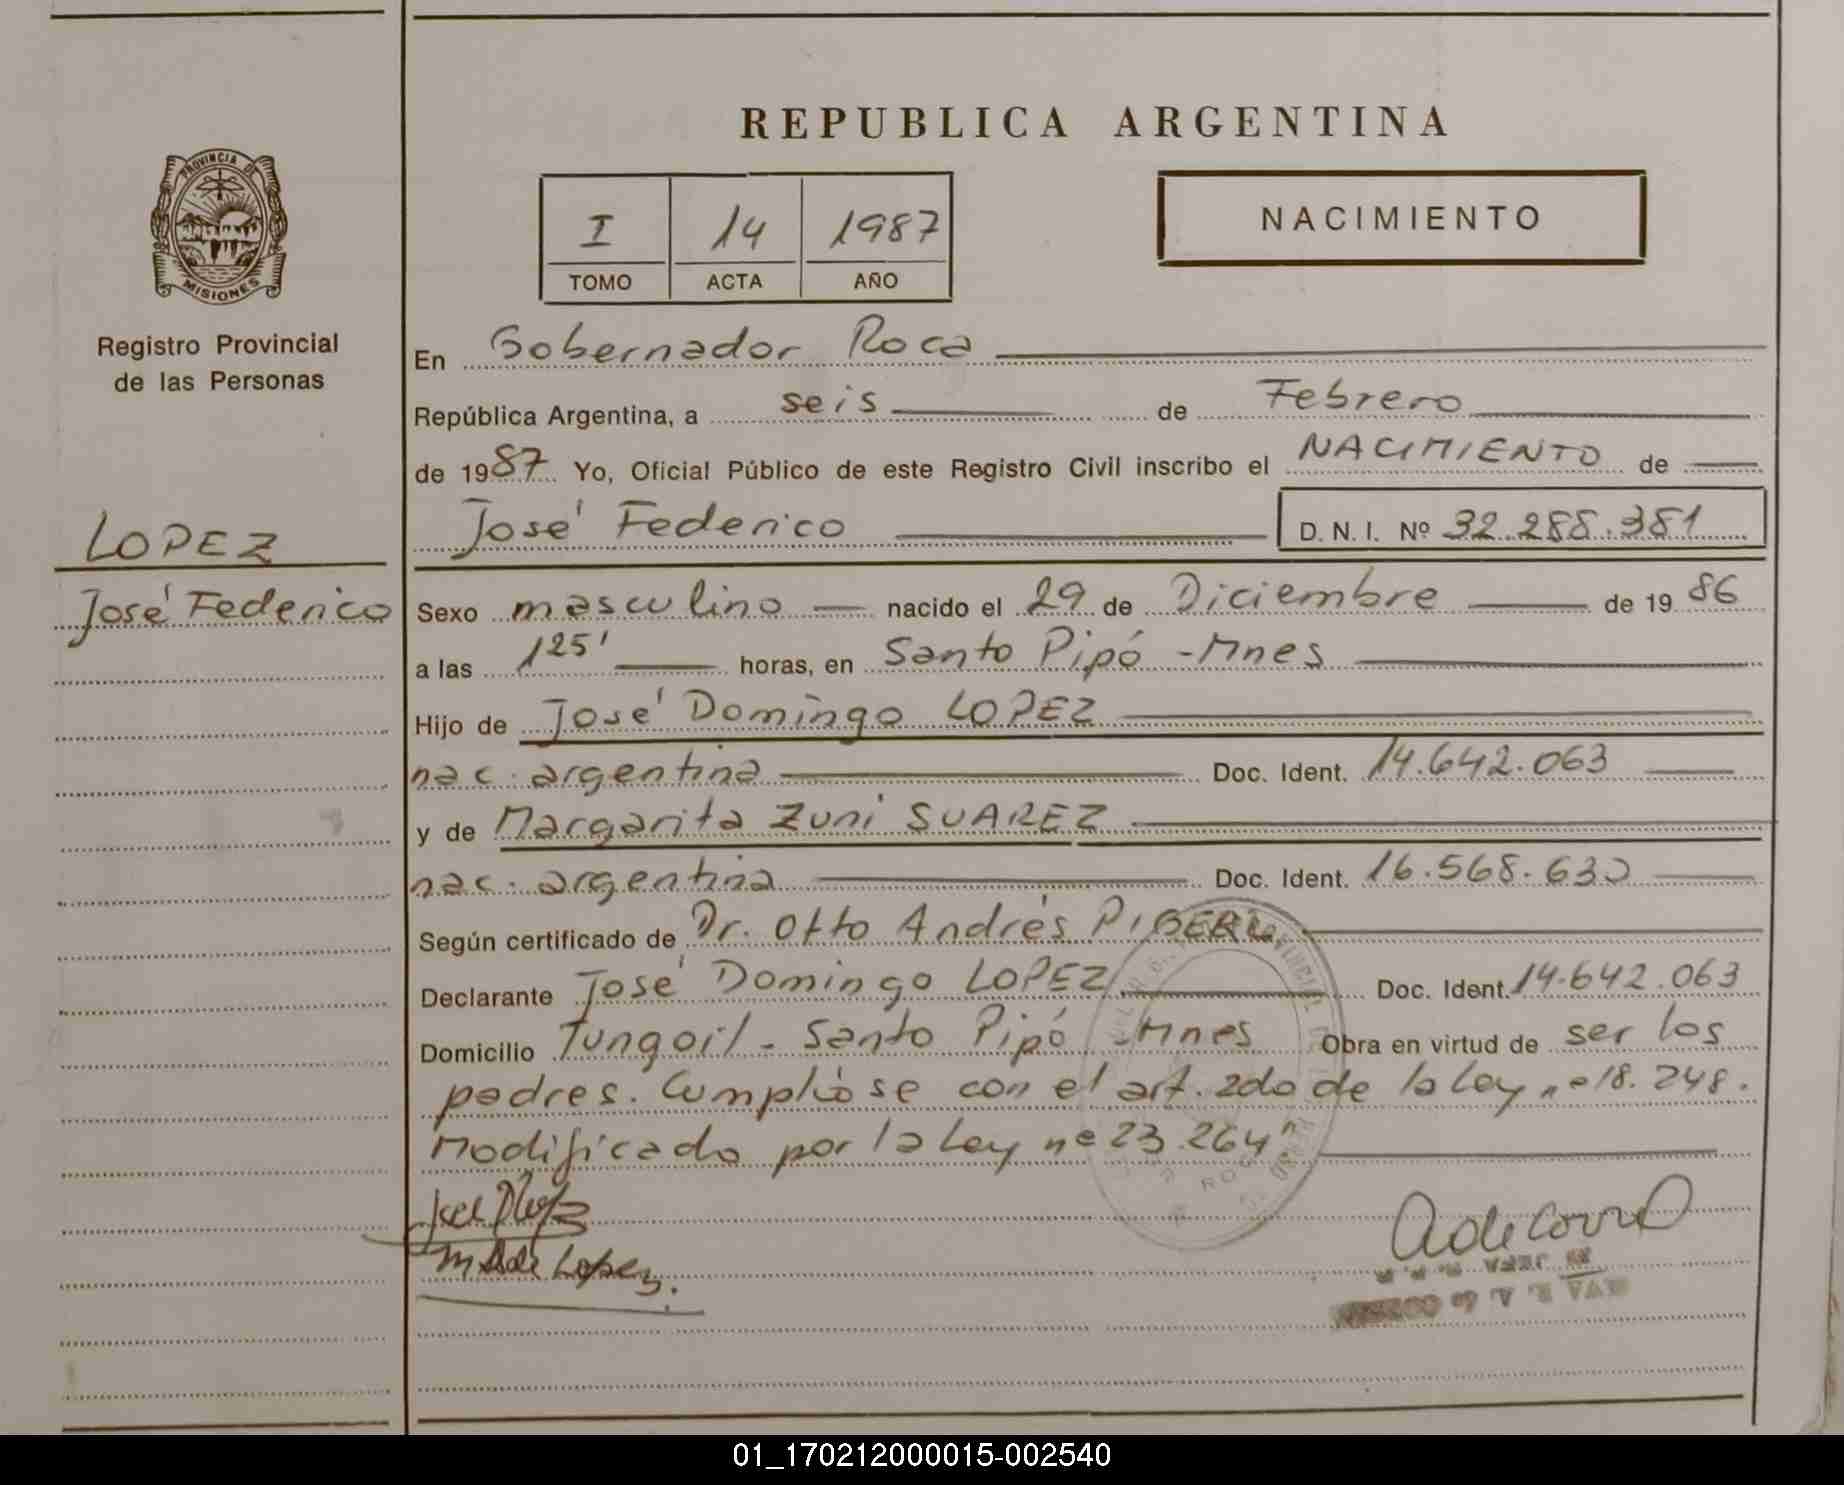 REPUBLICA ARGENTINA
PROVINCIA DE
MISIONES
Registro Provincial
de las Personas
I 14 1987
TOMO ACTA AÑO
NACIMIENTO
LOPEZ
José Federico
En Gobernador Roca
República Argentina, a seis de Febrero
de 1987 Yo, Oficial Público de este Registro Civil inscribo el NACIMIENTO de
José Federico D. N. I. Nº 32.288.381
Sexo masculino nacido el 29 de Diciembre de 1986
a las 125' horas, en Santo Pipó - Mnes
Hijo de José Domingo LOPEZ
nac. argentina Doc. Ident. 14.642.063
y de Margarita Zuni SUAREZ
nac. argentina Doc. Ident. 16.568.630
Según certificado de Dr. Otto Andrés
Declarante José Domingo LOPEZ Doc. Ident. 14.642.063
Domicilio Tungoil - Santo Pipó - Mnes Obra en virtud de ser los
padres. Cumplióse con el art. 2do de la Ley nº 18.248.
Modificado por la Ley nº 23.264"
M S de Lopez.
A de Corr
01_170212000015-002540